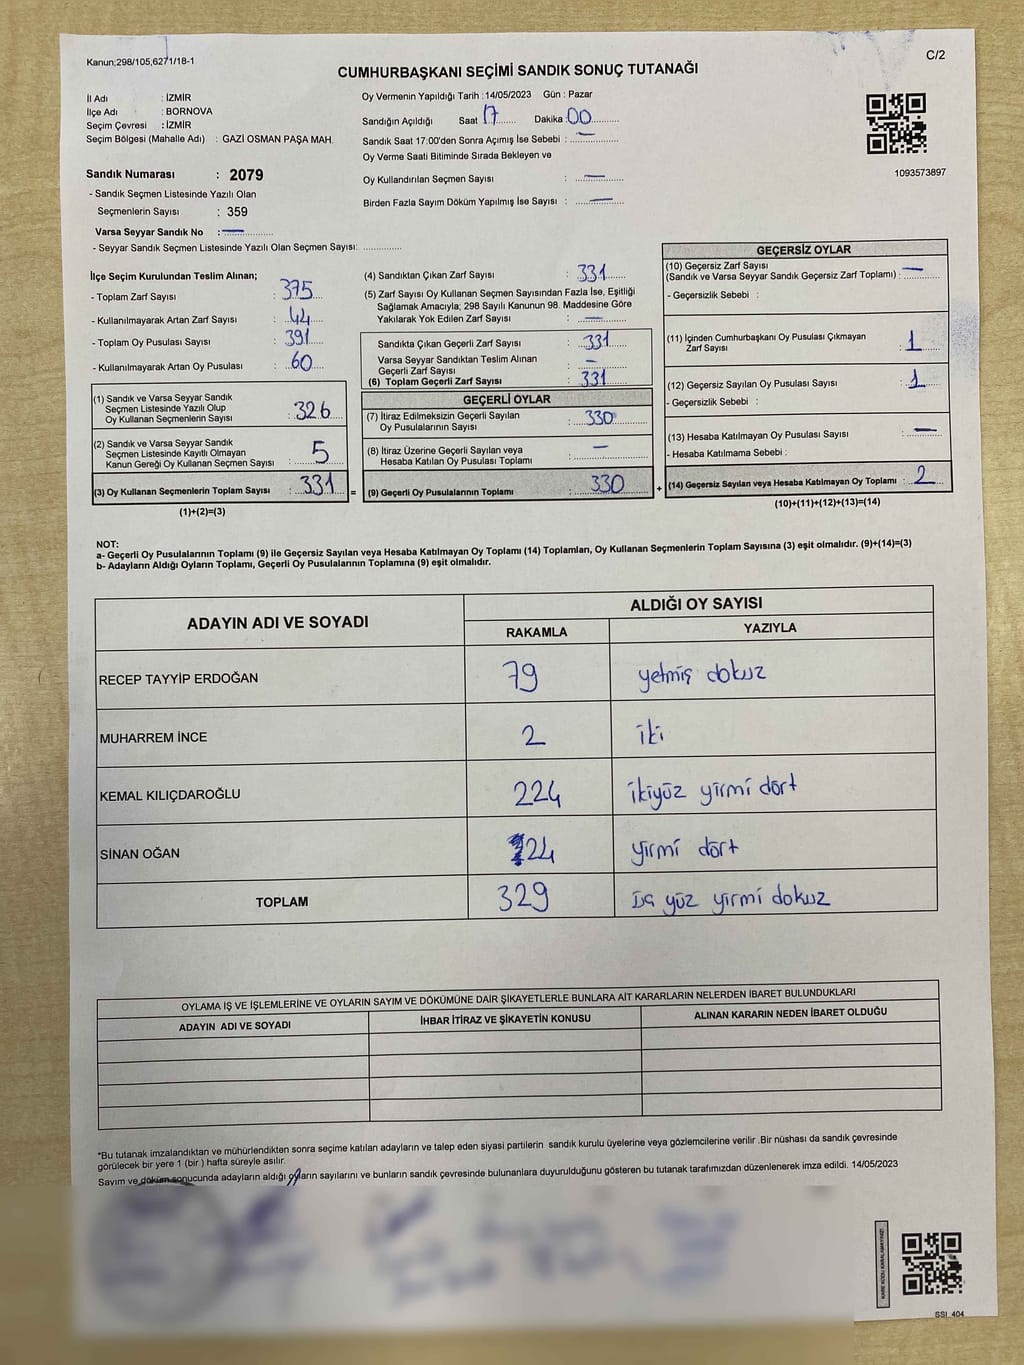 Kanun;298/105,6271/18-1
C/2
CUMHURBAŞKANI SEÇİMİ SANDIK SONUÇ TUTANAĞI
İl Adı : İZMİR
İlçe Adı : BORNOVA
Seçim Çevresi : İZMİR
Seçim Bölgesi (Mahalle Adı) : GAZİ OSMAN PAŞA MAH.
Oy Vermenin Yapıldığı Tarih : 14/05/2023 Gün : Pazar
Sandığın Açıldığı Saat 17 Dakika : 00
Sandık Saat 17:00'den Sonra Açımış İse Sebebi : —
Oy Verme Saati Bitiminde Sırada Bekleyen ve
Oy Kullandırılan Seçmen Sayısı : —
Birden Fazla Sayım Döküm Yapılmış İse Sayısı : —
1093573897
Sandık Numarası : 2079
- Sandık Seçmen Listesinde Yazılı Olan
Seçmenlerin Sayısı : 359
Varsa Seyyar Sandık No : —
- Seyyar Sandık Seçmen Listesinde Yazılı Olan Seçmen Sayısı: ..............
İlçe Seçim Kurulundan Teslim Alınan;
- Toplam Zarf Sayısı : 375
- Kullanılmayarak Artan Zarf Sayısı : 44
- Toplam Oy Pusulası Sayısı : 391
- Kullanılmayarak Artan Oy Pusulası : 60
(1) Sandık ve Varsa Seyyar Sandık
Seçmen Listesinde Yazılı Olup
Oy Kullanan Seçmenlerin Sayısı : 326
(2) Sandık ve Varsa Seyyar Sandık
Seçmen Listesinde Kayıtlı Olmayan
Kanun Gereği Oy Kullanan Seçmen Sayısı : 5
(3) Oy Kullanan Seçmenlerin Toplam Sayısı : 331 =
(1)+(2)=(3)
(4) Sandıktan Çıkan Zarf Sayısı : 331
(5) Zarf Sayısı Oy Kullanan Seçmen Sayısından Fazla İse, Eşitliği
Sağlamak Amacıyla; 298 Sayılı Kanunun 98. Maddesine Göre
Yakılarak Yok Edilen Zarf Sayısı : —
Sandıkta Çıkan Geçerli Zarf Sayısı : 331
Varsa Seyyar Sandıktan Teslim Alınan
Geçerli Zarf Sayısı : —
(6) Toplam Geçerli Zarf Sayısı : 331
GEÇERLİ OYLAR
(7) İtiraz Edilmeksizin Geçerli Sayılan
Oy Pusulalarının Sayısı : 330
(8) İtiraz Üzerine Geçerli Sayılan veya
Hesaba Katılan Oy Pusulası Toplamı : —
(9) Geçerli Oy Pusulalarının Toplamı : 330 +
GEÇERSİZ OYLAR
(10) Geçersiz Zarf Sayısı
(Sandık ve Varsa Seyyar Sandık Geçersiz Zarf Toplamı) : —
- Geçersizlik Sebebi :
(11) İçinden Cumhurbaşkanı Oy Pusulası Çıkmayan
Zarf Sayısı : 1
(12) Geçersiz Sayılan Oy Pusulası Sayısı : 1
- Geçersizlik Sebebi :
(13) Hesaba Katılmayan Oy Pusulası Sayısı : —
- Hesaba Katılmama Sebebi :
(14) Geçersiz Sayılan veya Hesaba Katılmayan Oy Toplamı : 2
(10)+(11)+(12)+(13)=(14)
NOT:
a- Geçerli Oy Pusulalarının Toplamı (9) ile Geçersiz Sayılan veya Hesaba Katılmayan Oy Toplamı (14) Toplamları, Oy Kullanan Seçmenlerin Toplam Sayısına (3) eşit olmalıdır. (9)+(14)=(3)
b- Adayların Aldığı Oyların Toplamı, Geçerli Oy Pusulalarının Toplamına (9) eşit olmalıdır.
ADAYIN ADI VE SOYADI
ALDIĞI OY SAYISI
RAKAMLA YAZIYLA
RECEP TAYYİP ERDOĞAN 79 yetmiş dokuz
MUHARREM İNCE 2 iki
KEMAL KILIÇDAROĞLU 224 ikiyüz yirmi dört
SİNAN OĞAN 24 yirmi dört
TOPLAM 329 üç yüz yirmi dokuz
OYLAMA İŞ VE İŞLEMLERİNE VE OYLARIN SAYIM VE DÖKÜMÜNE DAİR ŞİKAYETLERLE BUNLARA AİT KARARLARIN NELERDEN İBARET BULUNDUKLARI
ADAYIN ADI VE SOYADI İHBAR İTİRAZ VE ŞİKAYETİN KONUSU ALINAN KARARIN NEDEN İBARET OLDUĞU
*Bu tutanak imzalandıktan ve mühürlendikten sonra seçime katılan adayların ve talep eden siyasi partilerin sandık kurulu üyelerine veya gözlemcilerine verilir .Bir nüshası da sandık çevresinde
görülecek bir yere 1 (bir ) hafta süreyle asılır.
Sayım ve döküm sonucunda adayların aldığı oyların sayılarını ve bunların sandık çevresinde bulunanlara duyurulduğunu gösteren bu tutanak tarafımızdan düzenlenerek imza edildi. 14/05/2023
SSI_404